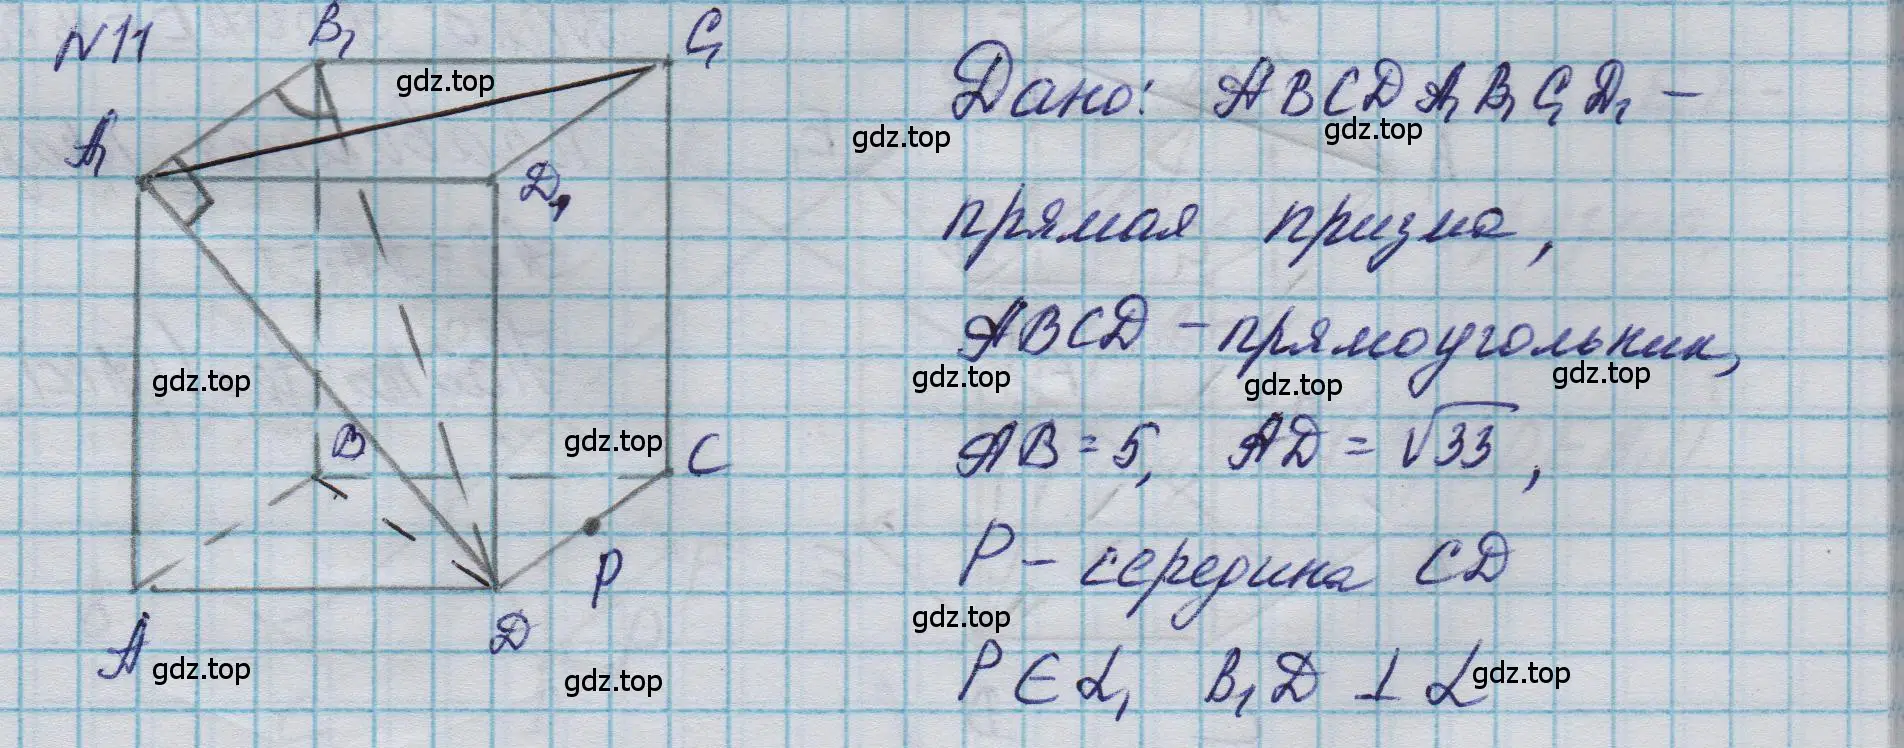 N11
B₁
C₁
A₁
D₁
B
C
P
A
D
Дано: ABCDA₁B₁C₁D₁ –
прямая призма,
ABCD – прямоугольник,
AB = 5, AD = √33,
P – середина CD
P ∈ α, B₁D ⊥ α
gdz.top
gdz.top
gdz.top
gdz.top
gdz.top
gdz.top
gdz.top
gdz.top
gdz.top
gdz.top
gdz.top
gdz.top